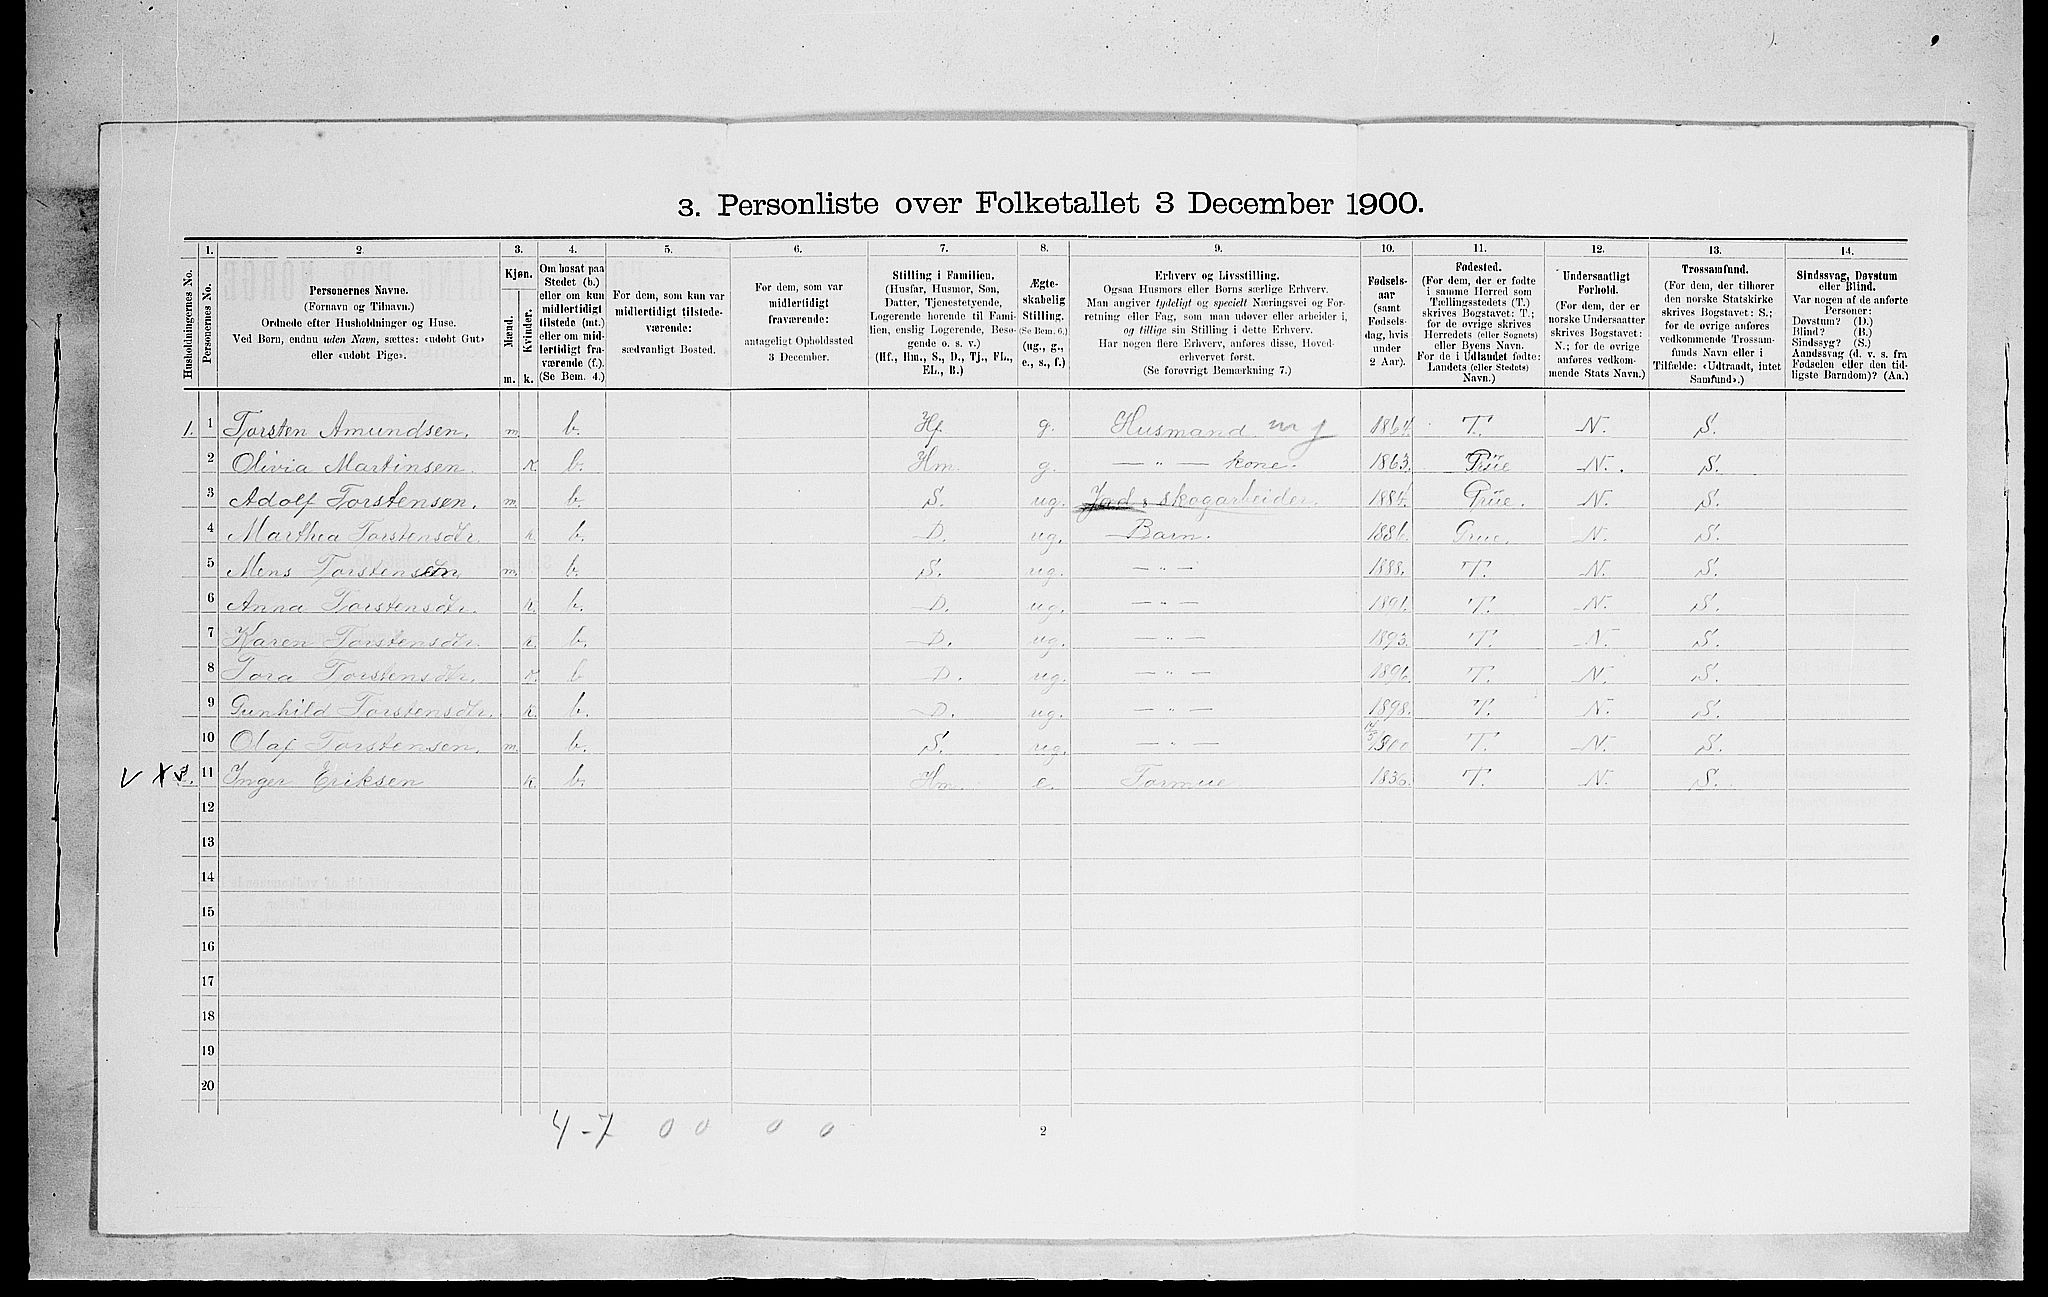 3. Personliste over Folketallet 3 December 1900.
Husholdningernes No.
1.
Personernes No.
2.
Personernes Navne.
(Fornavn og Tilnavn.)
Ordnede efter Husholdninger og Huse.
Ved Børn, endnu uden Navn, sættes: «udøbt Gut»
eller «udøbt Pige».
3.
Kjøn.
Mænd.
Kvinder.
m. k.
4.
Om bosat paa
Stedet (b.)
eller om kun
midlertidigt
tilstede (mt.)
eller om mid-
lertidigt fra-
værende (f.).
(Se Bem. 4.)
5.
For dem, som kun var
midlertidigt tilstede-
værende:
sædvanligt Bosted.
6.
For dem, som var
midlertidigt
fraværende:
antageligt Opholdssted
3 December.
7.
Stilling i Familien.
(Husfar, Husmor, Søn,
Datter, Tjenestetyende,
Logerende hørende til Fami-
lien, enslig Logerende, Besø-
gende o. s. v.)
(Hf., Hm., S., D., Tj., FL.,
EL., B.)
8.
Ægte-
skabelig
Stilling.
(Se Bem. 6.)
(ug., g.,
e., s., f.)
9.
Erhverv og Livsstilling.
Ogsaa Husmors eller Børns særlige Erhverv.
Man angiver tydeligt og specielt Næringsvei og For-
retning eller Fag, som man udøver eller arbeider i,
og tillige sin Stilling i dette Erhverv.
Har nogen flere Erhverv, anføres disse, Hoved-
erhvervet først.
(Se forøvrigt Bemærkning 7.)
10.
Fødsels-
aar
(samt
Fødsels-
dag, hvis
under
2 Aar).
11.
Fødested.
(For dem, der er fødte
i samme Herred som
Tællingsstedets (T.)
skrives Bogstavet: T.;
for de øvrige skrives
Herredets (eller Sognets)
eller Byens Navn.
For de i Udlandet fødte:
Landets (eller Stedets)
Navn.)
12.
Undersaatligt
Forhold.
(For dem, der er
norske Undersaatter
skrives Bogstavet:
N.; for de øvrige
anføres vedkom-
mende Stats Navn.)
13.
Trossamfund.
(For dem, der tilhører
den norske Statskirke
skrives Bogstavet: S.;
for de øvrige anføres
vedkommende Trossam-
funds Navn eller i
Tilfælde: «Udtraadt, intet
Samfund».)
14.
Sindssvag, Døvstum
eller Blind.
Var nogen af de anførte
Personer:
Døvstum? (D.)
Blind? (B.)
Sindssyg? (S.)
Aandssvag (d. v. s. fra
Fødselen eller den tid-
ligste Barndom)? (Aa.)
1. 1 Torsten Amundsen. m. b. Hf. g. Husmand m j 1864. T. N. S.
2 Olivia Martinsen k. b. Hm. g. — " — kone. 1863. Grue N. S.
3 Adolf Torstensen. m. b. S. ug. Jord & skogarbeider. 1884. Grue. N. S.
4 Marthea Torstensdtr. k. b. D. ug. Barn. 1886. Grue. N. S.
5 Mens Torstensen m. b. S. ug. — " — 1888. T. N. S.
6 Anna Torstensdtr. k. b. D. ug. — " — 1891. T. N. S.
7 Karen Torstensdtr. k. b. D. ug. — " — 1893. T. N. S.
8 Tora Torstensdtr. k. b D. ug. — " — 1896. T. N. S.
9 Gunhild Torstensdtr. k. b. D. ug. — " — 1898. T. N. S.
10 Olaf Torstensen. m. b. S. ug. — " — 1900 T. N. S.
V X 2. 11 Inger Eriksen k. b. Hm. e. Formue 1836. T. N. S.
12
13
14
15
16
17
18
19
20
4-7 0 0 0 0
2